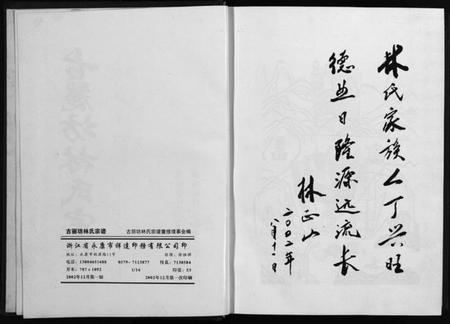 林氏家族人丁兴旺
德业日隆源远流长
林正山
二〇〇二年
八月十一日
古丽坊林氏宗谱
古丽坊林氏宗谱重修理事会编
浙江省永康市祥达印务有限公司印
电话：13004651488 0579-7113877 传真：7130584
开本：787×1092 1/16 印张：53
2002年12月第一版 2002年12月第一次印刷